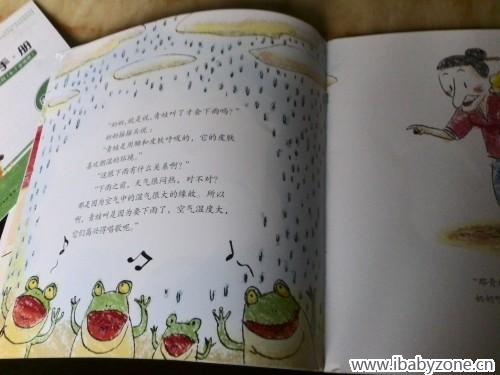 册
"奶奶,就是说,青蛙叫了才会下雨吗?"
奶奶摇摇头说:
"青蛙是用肺和皮肤呼吸的,它的皮肤
喜欢潮湿的环境。"
"这跟下雨有什么关系啊?"
"下雨之前,天气很闷热,对不对?
那是因为空气中的湿气很大的缘故。所以
啊,青蛙叫是因为要下雨了,空气湿度大,
它们高兴得唱歌呢。"
"那青
奶奶
www.ibabyzone.cn